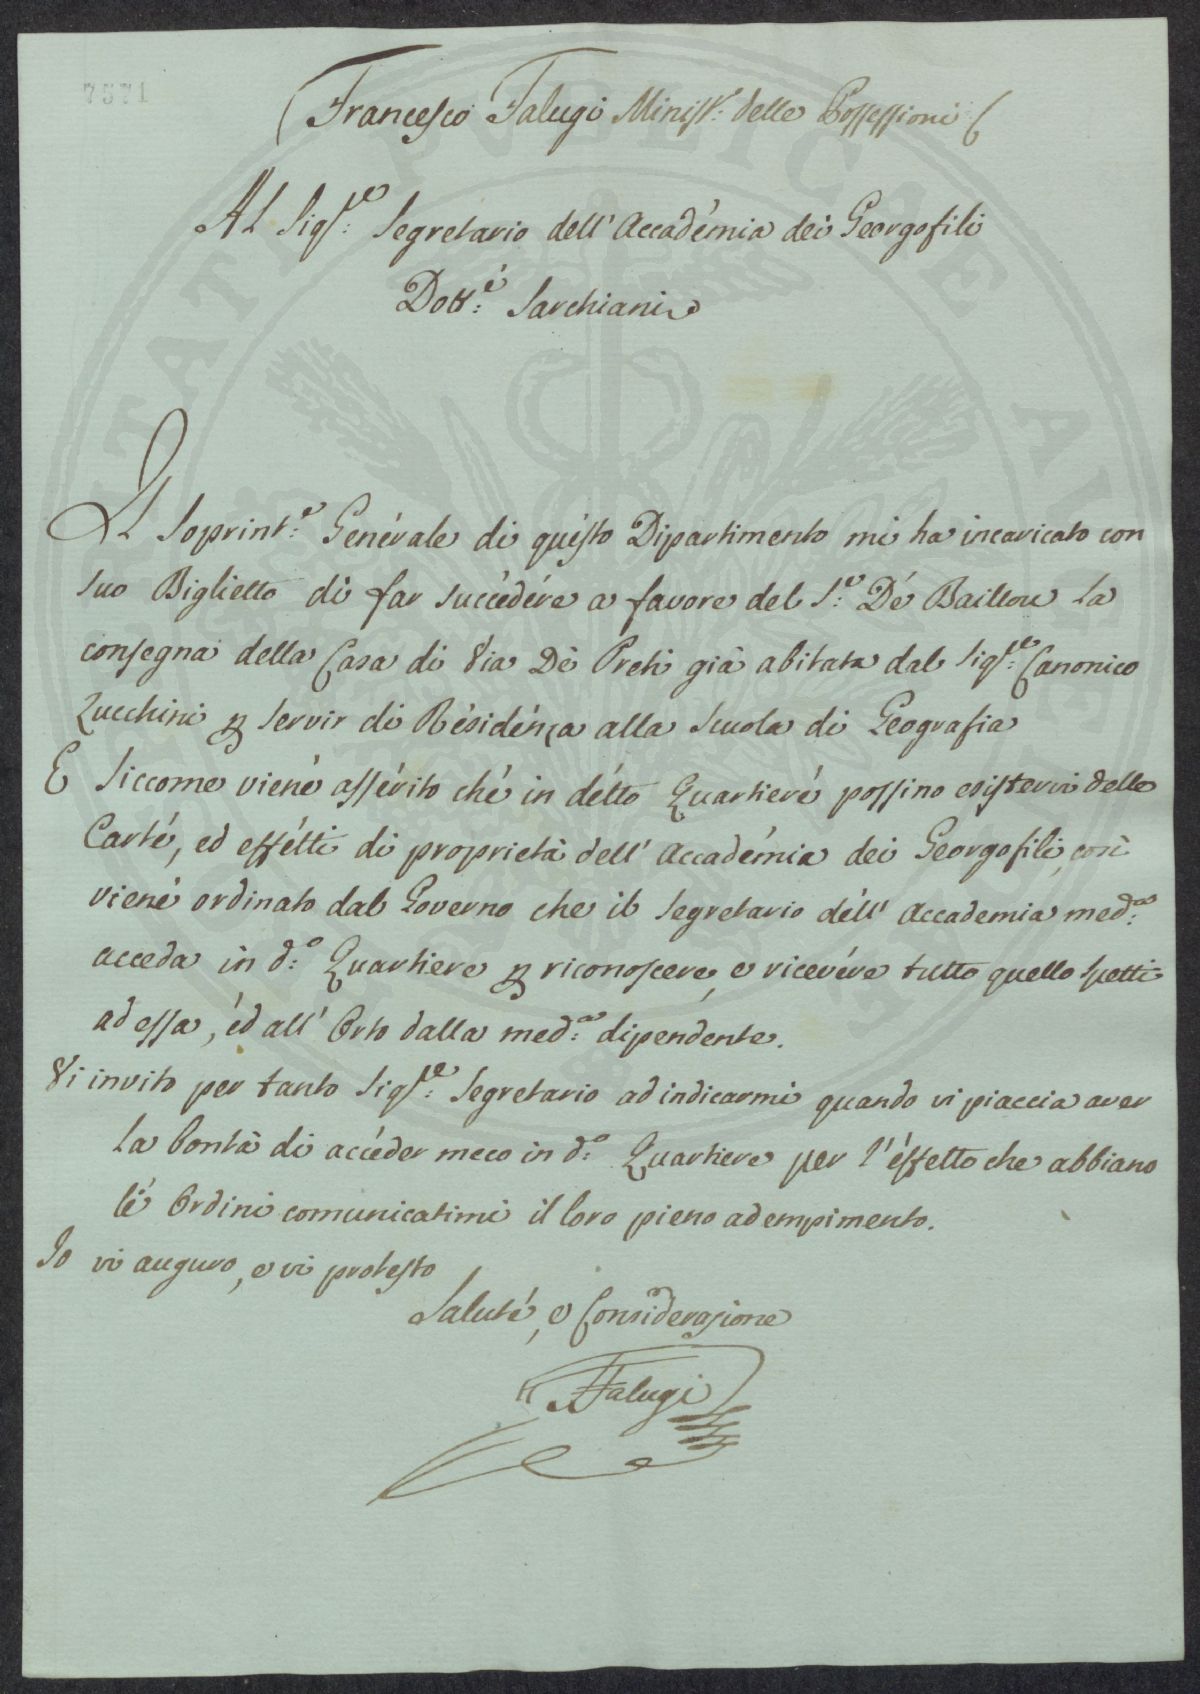 7571
Francesco Falugi Minist.: delle Possessioni
Al Sigre: Segretario dell' Accadémia dei Georgofili
Dotté: Sarchiani
Il Soprinte: Genérale di quésto Dipartimento mi ha incaricato con
suo Biglietto di far succédére a favore del Se: Dé Baillou la
consegna della Casa di Via Dè Preti già abitata dal Sigre: Canonico
Zucchini p servir di Résidénza alla Scuola di Geografia
E Siccome viené assérito ché in détto Quartieré possino esistervi delle
Carté, ed effétti di proprietà dell' Accadémia dei Georgofili, così
viené ordinato dal Governo che il Segretario déll' Accademia meda:
acceda in do: Quartiere p riconoscere, e ricevére tutto quello spetti
ad essa, éd all' Orto dalla meda: dipéndente.
Vi invito per tanto Sigre: Segretario ad indicarmi quando vi piaccia aver
la bontà di accéder meco in do: Quartiere per l'éffetto che abbiano
lé Ordini comunicatimi il loro pieno adempimento.
Io vi auguro, e vi protesto
Saluté, e Considerazione
Falugi